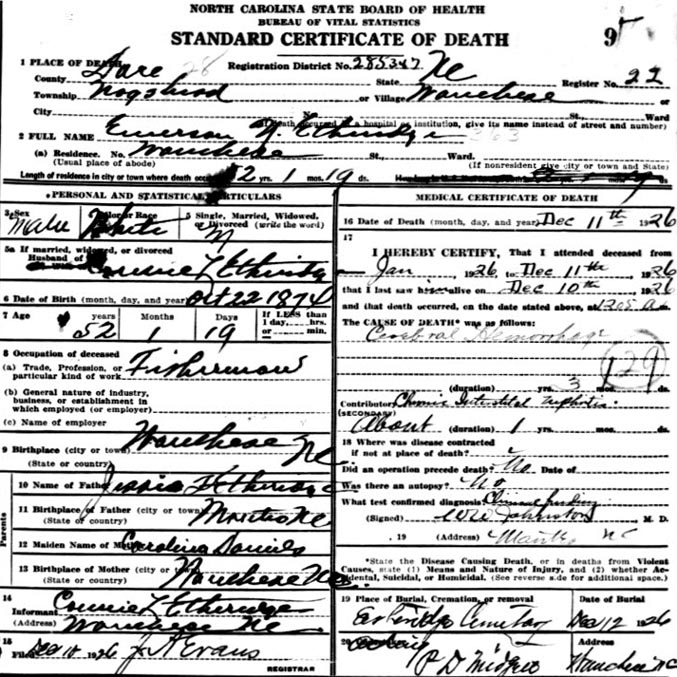 NORTH CAROLINA STATE BOARD OF HEALTH
BUREAU OF VITAL STATISTICS
STANDARD CERTIFICATE OF DEATH
95
1 PLACE OF DEATH
County Dare 28 Registration District No. 285347 State NC Register No. 22
Township or Village Wanchese or
City No. St., Ward
(If death occurred in a hospital or institution, give its name instead of street and number)
2 FULL NAME Emerson Etheridge 363
(a) Residence. No. Wanchese St., Ward.
(Usual place of abode) (If nonresident give city or town and State)
Length of residence in city or town where death occurred 52 yrs. 1 mos. 19 ds.
PERSONAL AND STATISTICAL PARTICULARS
3 Sex Male Color or Race White 5 Single, Married, Widowed, or Divorced (write the word) M
5a If married, widowed, or divorced
Husband of Connie L Etheridge
6 Date of Birth (month, day, and year) Oct 22 1874
7 Age 52 years 1 Months 19 Days If LESS than 1 day, hrs. or min.
8 Occupation of deceased
(a) Trade, Profession, or particular kind of work Fisherman
(b) General nature of industry, business, or establishment in which employed (or employer)
(c) Name of employer
9 Birthplace (city or town) Wanchese
(State or country) NC
Parents
10 Name of Father Etheridge
11 Birthplace of Father (city or town)
(State or country) Manteo NC
12 Maiden Name of Mother Carolina Daniels
13 Birthplace of Mother (city or town)
(State or country) Wanchese NC
14
Informant Connie L Etheridge
(Address) Wanchese NC
15
Filed Dec 1926 J A Evans
REGISTRAR
MEDICAL CERTIFICATE OF DEATH
16 Date of Death (month, day, and year) Dec 11th 1926
17
I HEREBY CERTIFY, That I attended deceased from
Jan 1926 to Dec 11th 1926
that I last saw him alive on Dec 10th 1926
and that death occurred, on the date stated above, at 1205 A m.
The CAUSE OF DEATH* was as follows:
Cerebral Hemorrhage
129
(duration) yrs. 3 mos. ds.
Contributory Chronic Interstitial nephritis
(SECONDARY)
About (duration) 1 yrs. mos. ds.
18 Where was disease contracted
if not at place of death?
Did an operation precede death? No Date of
Was there an autopsy? No
What test confirmed diagnosis? Clinical
(Signed) Johnston M. D.
, 19 (Address) Manteo NC
*State the Disease Causing Death, or in deaths from Violent
Causes, state (1) Means and Nature of Injury, and (2) whether Ac-
cidental, Suicidal, or Homicidal. (See reverse side for additional space.)
19 Place of Burial, Cremation, or removal Date of Burial
Etheridge Cemetery Dec 12 1926
20 Address
P D Midgett Wanchese NC